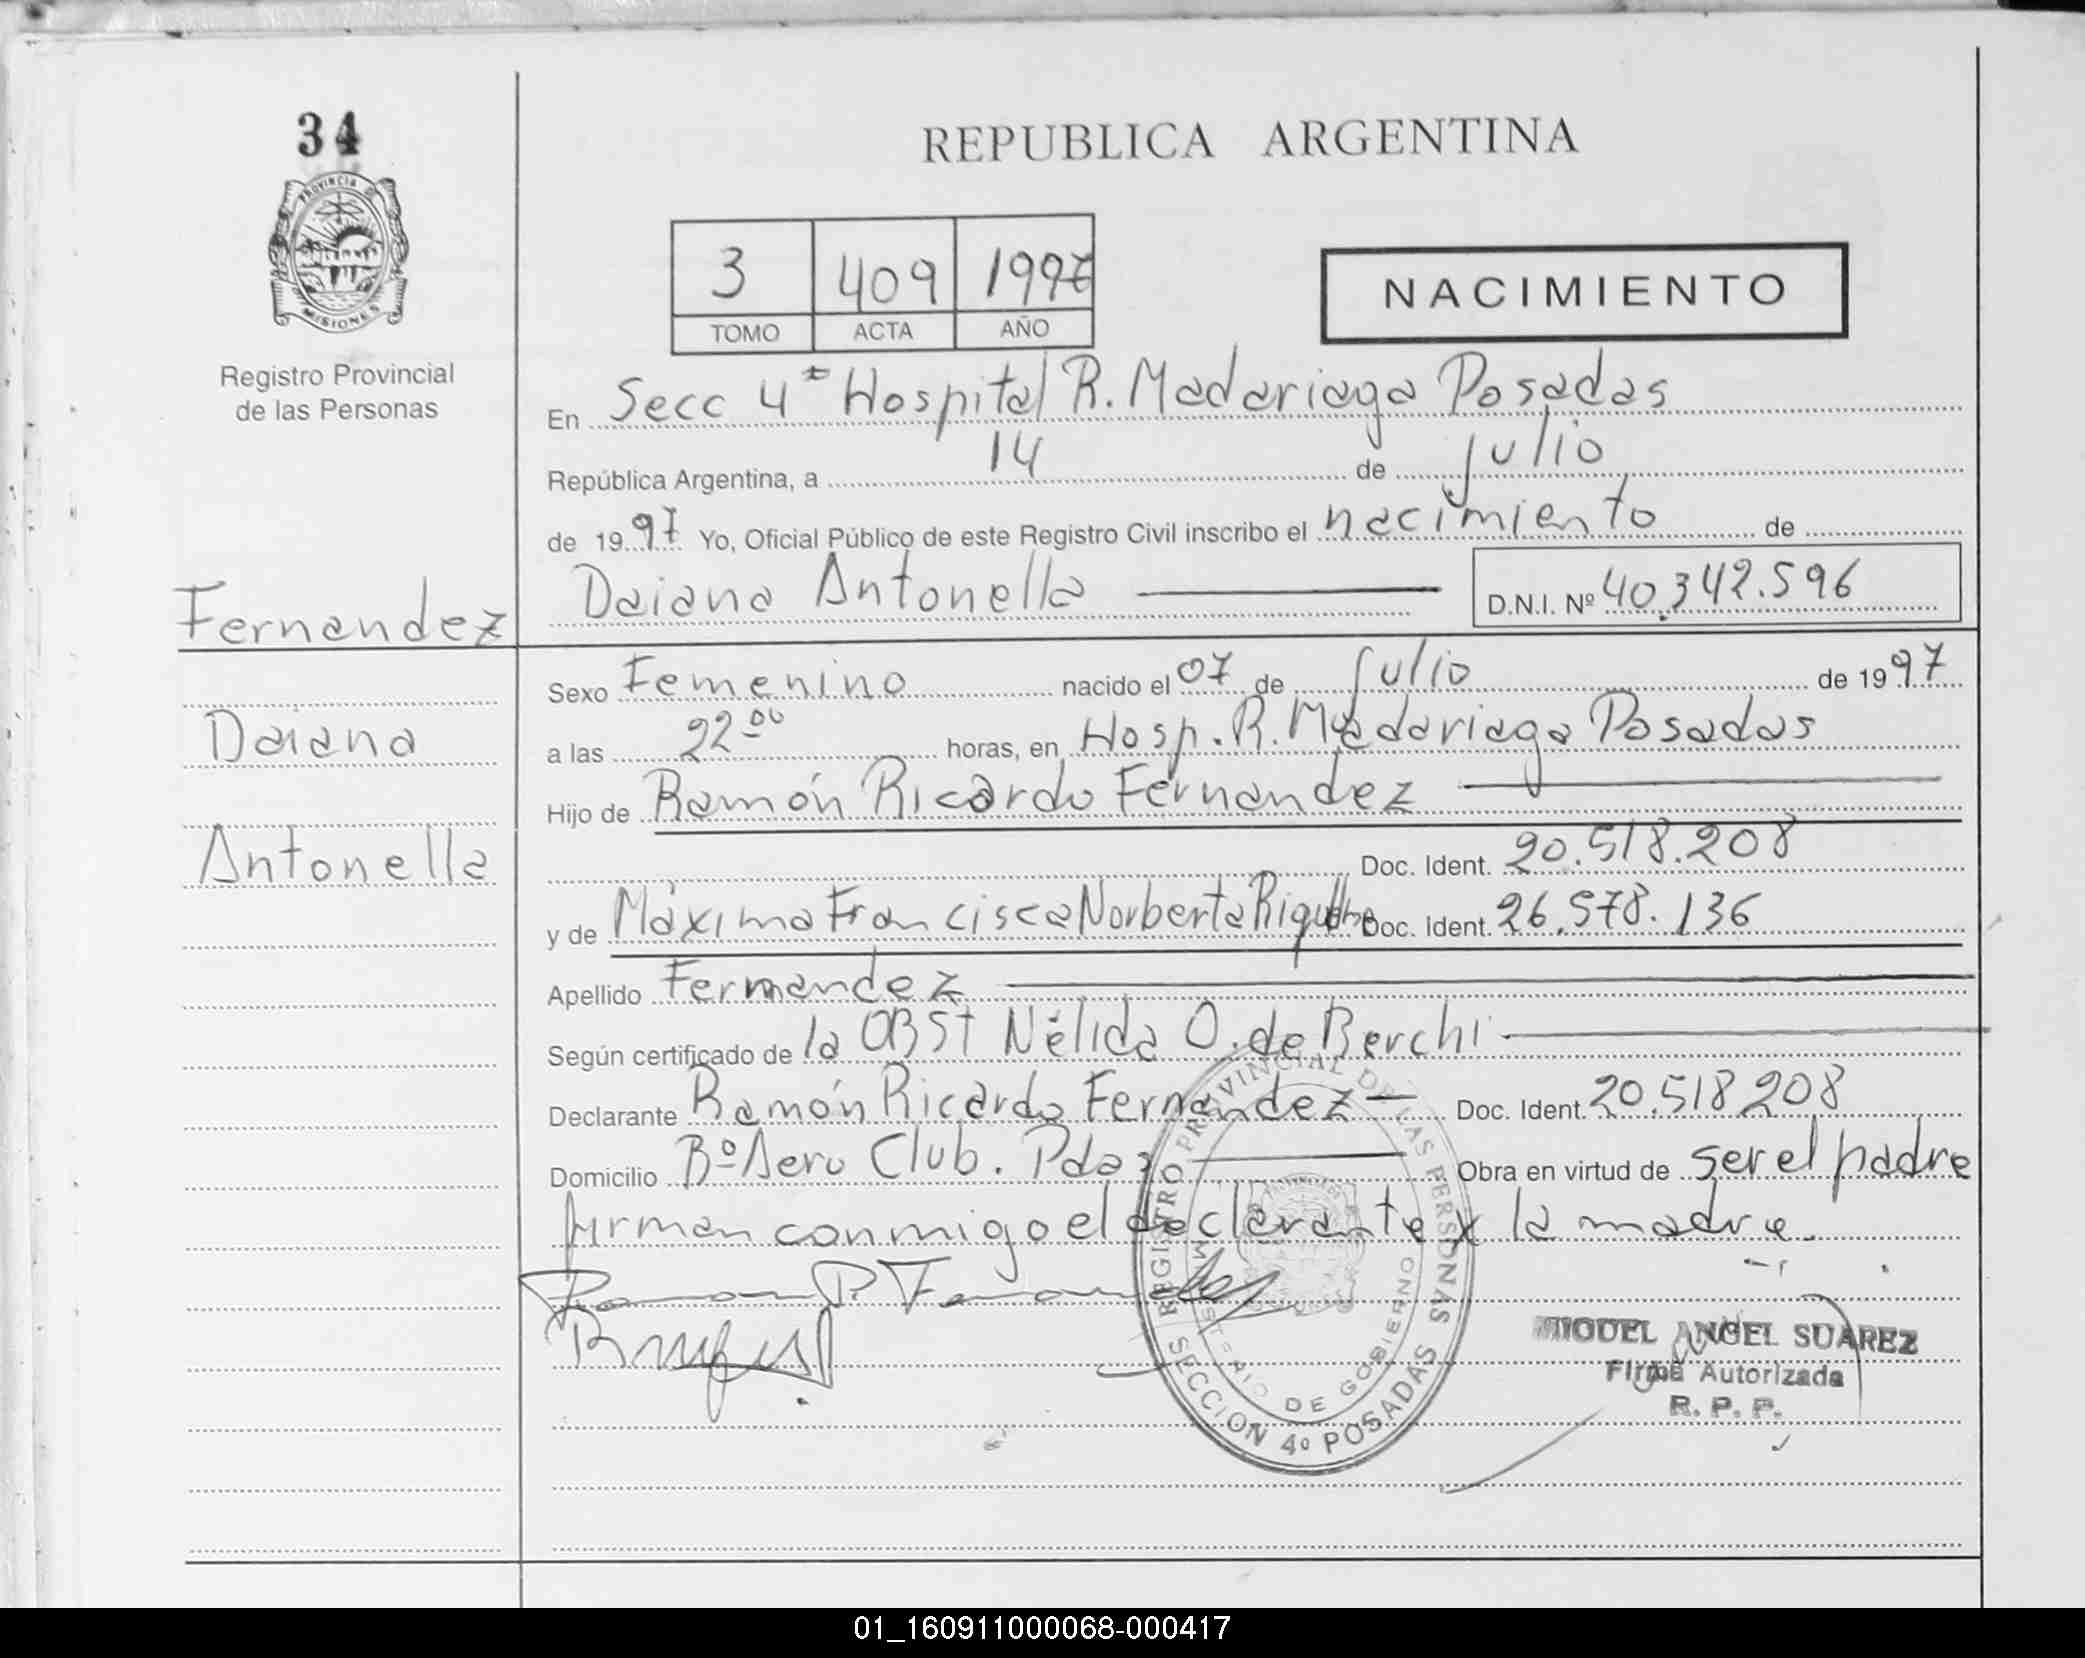 34
PROVINCIA DE
MISIONES
Registro Provincial
de las Personas
REPUBLICA ARGENTINA
3 409 1997
TOMO ACTA AÑO
NACIMIENTO
En Secc 4ª Hospital R. Madariaga Posadas
República Argentina, a 14 de julio
de 1997 Yo, Oficial Público de este Registro Civil inscribo el nacimiento de
Fernandez
Daiana Antonella
D.N.I. Nº 40.342.596
Daiana
Antonella
Sexo Femenino nacido el 07 de julio de 1997
a las 22 00 horas, en Hosp. R. Madariaga Posadas
Hijo de Ramón Ricardo Fernandez
Doc. Ident. 20.518.208
y de Máxima Francisca Norberta Doc. Ident. 26.978.136
Apellido Fernandez
Según certificado de la OBST Nélida O. de Berchi
Declarante Ramón Ricardo Fernandez Doc. Ident. 20.518 208
Domicilio Bº Aero Club. Pdas Obra en virtud de ser el padre
firman conmigo el declarante y la madre.
REGISTRO PROVINCIAL DE LAS PERSONAS
MINISTERIO DE GOBIERNO
SECCION 4º POSADAS
MIGUEL ANGEL SUAREZ
Firma Autorizada
R. P. P.
01_160911000068-000417